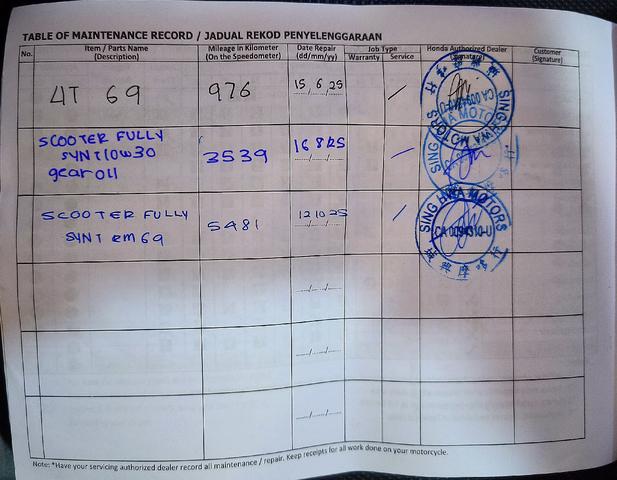 TABLE OF MAINTENANCE RECORD / JADUAL REKOD PENYELENGGARAAN
No. Item / Parts Name (Description) Mileage in Kilometer (On the Speedometer) Date Repair (dd/mm/yy) Job Type Warranty Service Honda Authorized Dealer (Signature) Customer (Signature)
4T 69 976 15 6 25
SCOOTER FULLY
SYNT 10W30 3539 16 8 25
gear oil
SCOOTER FULLY 5481 12 10 25
SYNT em 69
SING HWA MOTORS
CA 0094310-U
Note: *Have your servicing authorized dealer record all maintenance / repair. Keep receipts for all work done on your motorcycle.